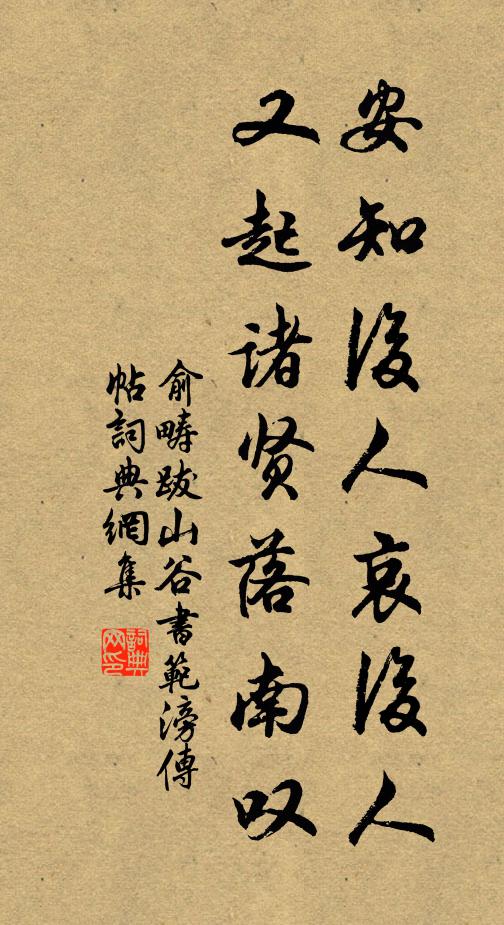 安知後人哀後人
又起诸贤落南叹
俞畴跋山谷書範滂傳
帖詞典網集
詞典网印